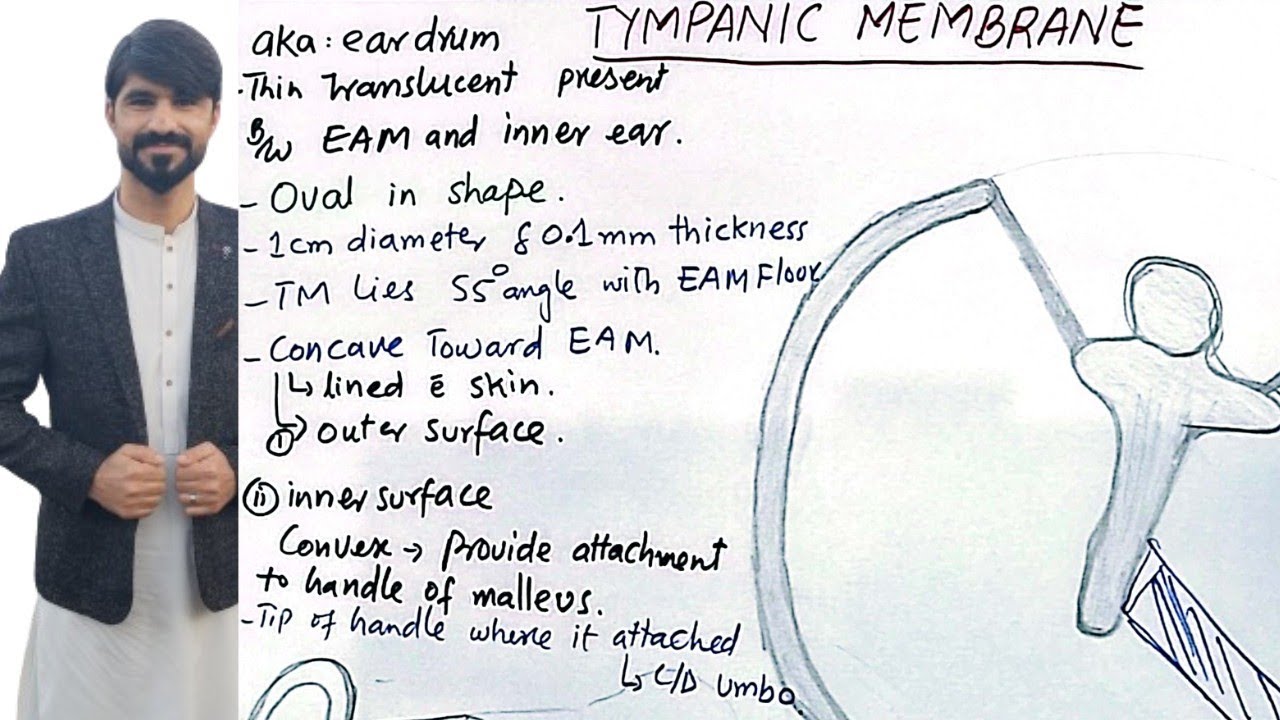 TYMPANIC MEMBRANE
aka: eardrum
·Thin translucent present
B/w EAM and inner ear.
- Oval in shape.
- 1cm diameter & 0.1mm thickness
- TM lies 55° angle with EAM Floor
- Concave Toward EAM.
↳ lined c̄ skin.
(i) outer surface.
(ii) inner surface
Convex → provide attachment
to handle of malleus.
- Tip of handle where it attached
↳ C/D umbo.